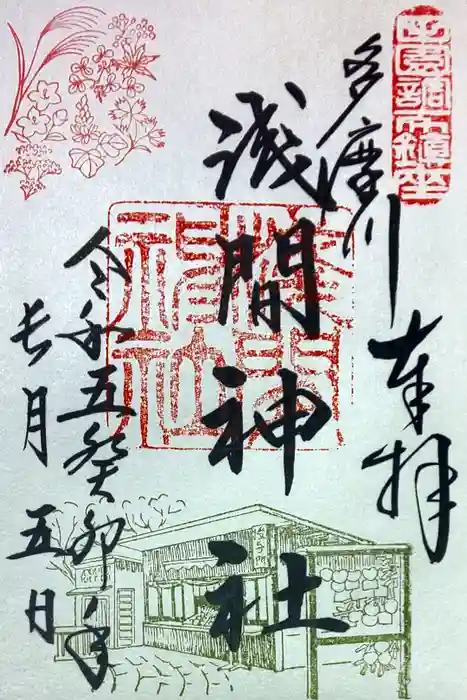 田園調布鎮坐
奉拝
多摩川
浅間神社
淺間神社
令和五癸卯年
長月五日